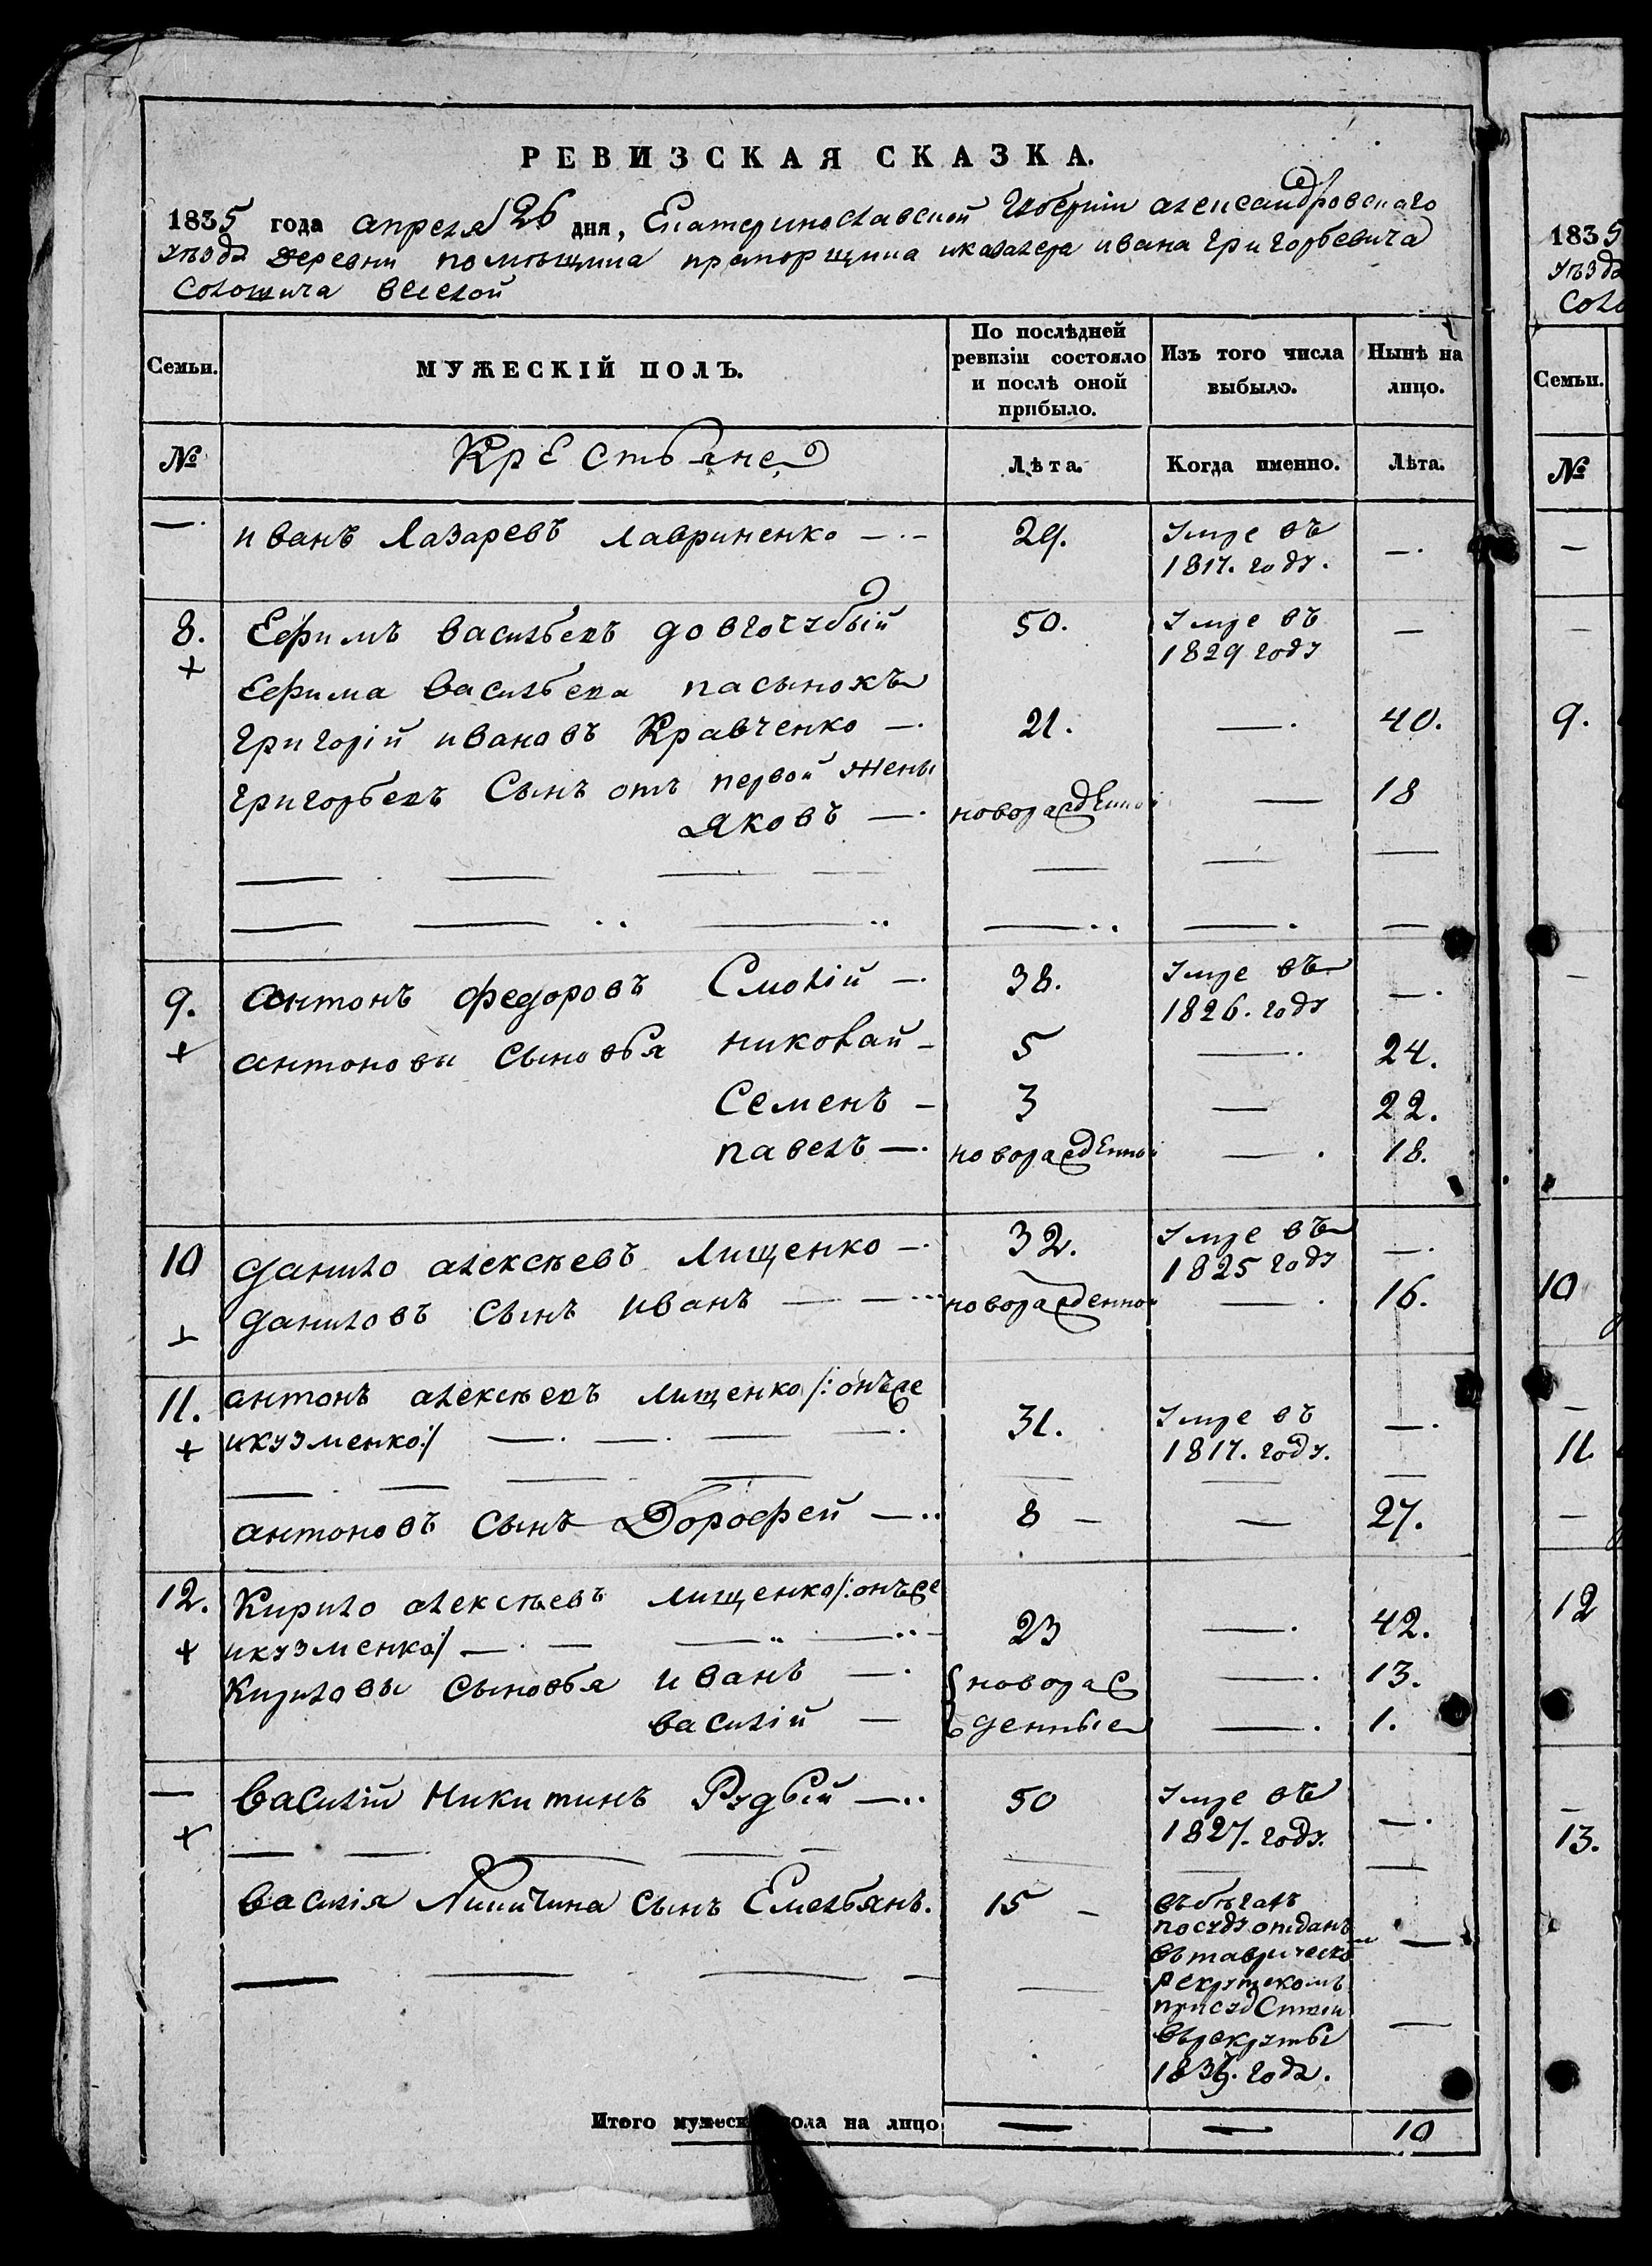 РЕВИЗСКАЯ СКАЗКА.
1835 года апреля 26 дня, Екатеринославской Губернїи александровскаго
уѣзда деревни помѣщика прапорщика икавалера ивана Григорьевича
Солошича веселой
Семьи. МУЖЕСКІЙ ПОЛЪ. По послѣдней ревизіи состояло и послѣ оной прибыло. Изъ того числа выбыло. Нынѣ на лицо.
№ Крестьяне Лѣта. Когда именно. Лѣта.
—. иванъ Лазаревъ лавриненко —.— 29. Умре въ —.
1817. году.
8. Ефимъ васильевъ довгочубый 50. Умре въ —
1829 году
Ефима васильева пасынокъ
григорій ивановъ Кравченко —. 21. —. 40.
григорьевъ Сынъ отъ первой жены
яковъ —. новорасденной — 18
9. антонъ федоровъ Смолій —. 38. Умре въ —.
1826. году
антоновы сыновья николай — 5 —. 24.
Семенъ — 3 — 22.
павелъ —. новорасденной —. 18.
10 данило алексѣевъ лищенко —. 32. Умре въ —.
1825 году
даниловъ сынъ иванъ — — новорасденной —. 16.
11. антонъ алексѣевъ лищенко /: онъже
икузменко :/ —. —. — —. 31. Умре въ —.
1817. году.
антоновъ сынъ Дорофей —.. 8 — — 27.
12. Кирило алексѣевъ лищенко /: онъже
икузменко :/ —. — — — 23 —. 42.
Кириловы сыновья иванъ —. новорас —. 13.
василій — денные —. 1.
— василій никитинъ Рудый —.. 50 Умре въ —.
1827. году.
василія Никитина сынъ Емельянъ. 15 — въбѣгахъ
посуду отданъ
въ таврическом
рекрутскомъ
присудствіи
въ рекруты
года.
Итого мужеска пола на лицо — — 10
1835
уѣзда
Соло
Семьи.
№
—
—
9.
—
10
—
11
—
12
—
13.